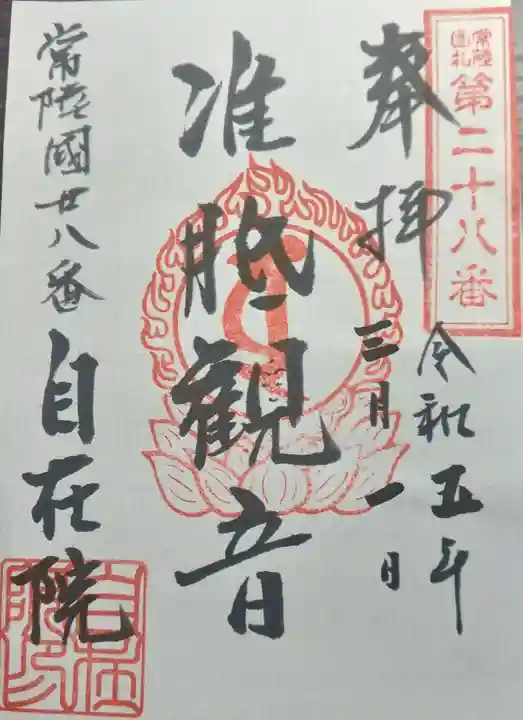 常陸
巡札
第二十八番
奉拝
令和五年
三月一日
准胝觀音
常陸國廿八番
自在院